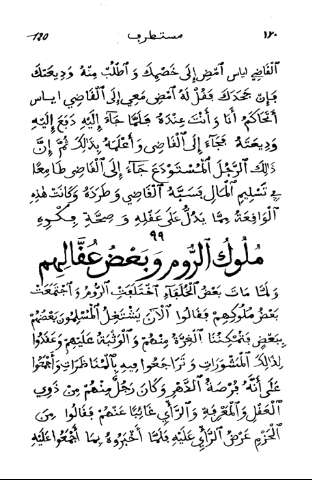 ١٢٠ مستطرف 120
القاضي اياس امض إلى خصمك و اطلب منه وديعتك
فإن جحدك فقل له امض معي إلى القاضي اياس
أتحاكم أنا و أنت عنده فلما جاء إليه دفع إليه
وديعته فجاء إلى القاضي و أعلمه بذلك ثم إن
ذلك الرجل المستودع جاء إلى القاضي طامعا
في تسليم المال فسبه القاضي و طرده و كانت هذه
الواقعة مما يدل على عقله و صحة فكره
٩٩
ملوك الروم و بعض عقالهم
و لما مات بعض الخلفاء اختلفت الروم و اجتمعت
بعض ملوكهم فقالوا الآن يشتغل المسلمون بعضهم
ببعض فتمكننا الغرة منهم و الوثبة عليهم و عقدوا
لذلك المشورات و تراجعوا فيه بالمناظرات و أجمعوا
على أنه فرصة الدهر و كان رجل منهم من ذوي
العقل و المعرفة و الرأي غائبا عنهم فقالوا من
الحزم عرض الرأي عليه فلما أخبروه بما أجمعوا عليه